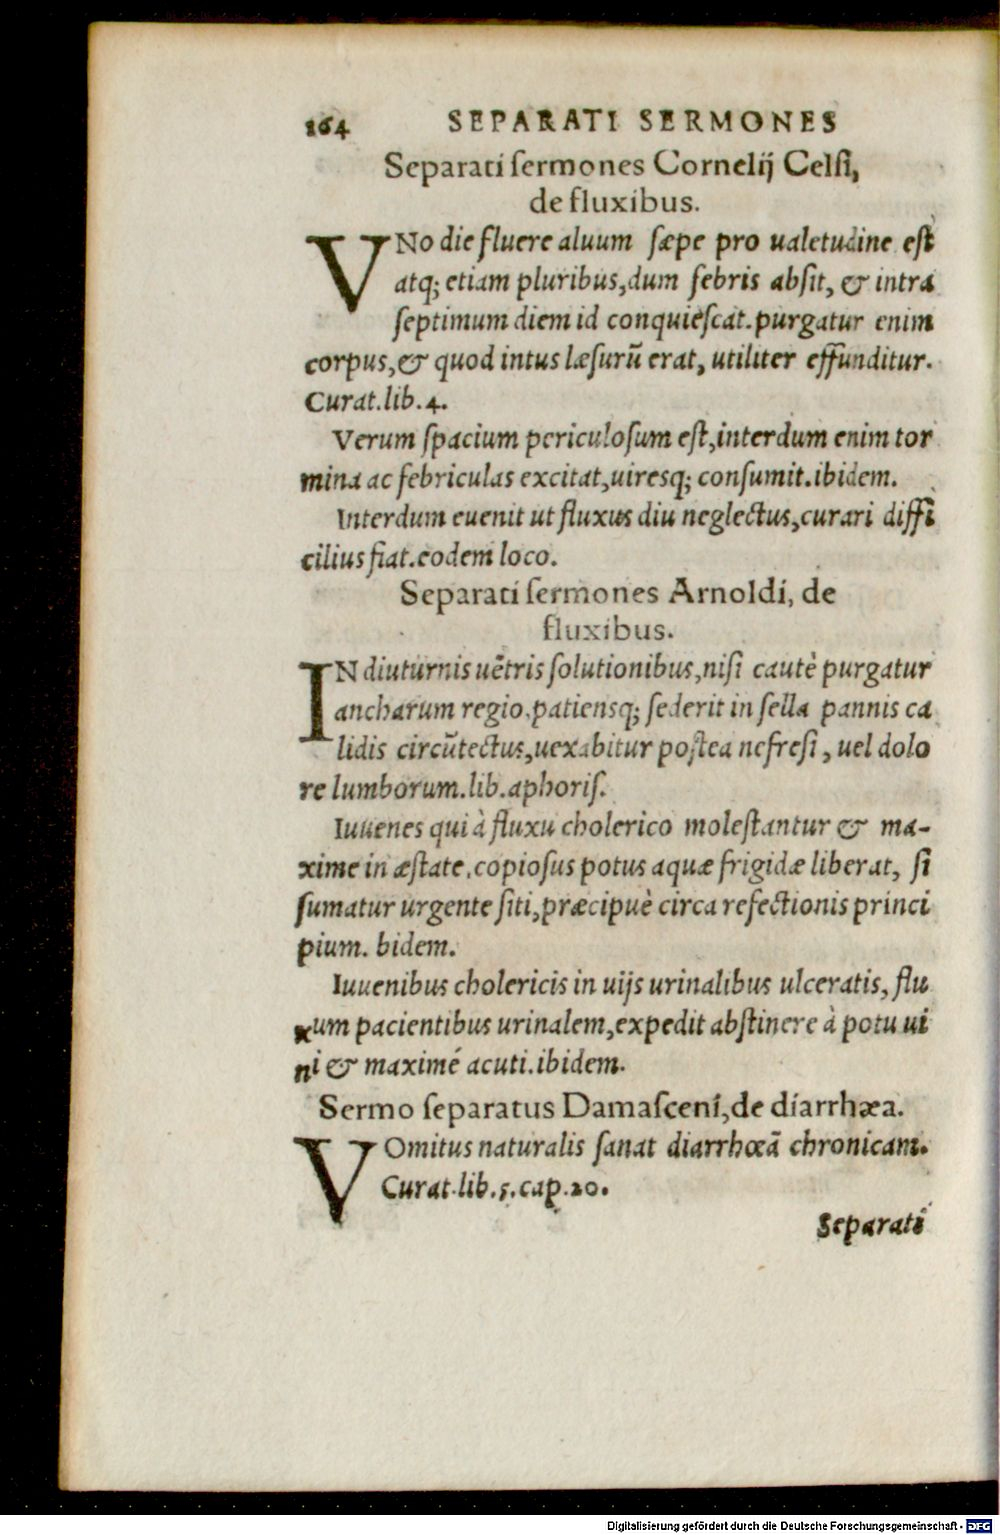 164 SEPARATI SERMONES
Separati sermones Cornelij Celsi,
de fluxibus.
VNo die fluere aluum sæpe pro ualetudine est
atq; etiam pluribus, dum febris absit, & intra
septimum diem id conquiescat. purgatur enim
corpus, & quod intus læsurū erat, utiliter effunditur.
Curat. lib. 4.
Verum spacium periculosum est, interdum enim tor
mina ac febriculas excitat, uiresq; consumit. ibidem.
Interdum euenit ut fluxus diu neglectus, curari diffi
cilius fiat. eodem loco.
Separati sermones Arnoldi, de
fluxibus.
IN diuturnis uētris solutionibus, nisi cautè purgatur
ancharum regio, patiensq; sederit in sella pannis ca
lidis circūtectus, uexabitur postea nefresi, uel dolo
re lumborum. lib. aphoris.
Iuuenes qui à fluxu cholerico molestantur & ma-
xime in æstate, copiosus potus aquæ frigidæ liberat, si
sumatur urgente siti, præcipuè circa refectionis princi
pium. bidem.
Iuuenibus cholericis in uijs urinalibus ulceratis, flu
xum pacientibus urinalem, expedit abstinere à potu ui
ni & maximé acuti. ibidem.
Sermo separatus Damasceni, de diarrhœa.
VOmitus naturalis sanat diarrhœā chronicam.
Curat. lib. 5. cap. 20.
Separati
Digitalisierung gefördert durch die Deutsche Forschungsgemeinschaft - DFG